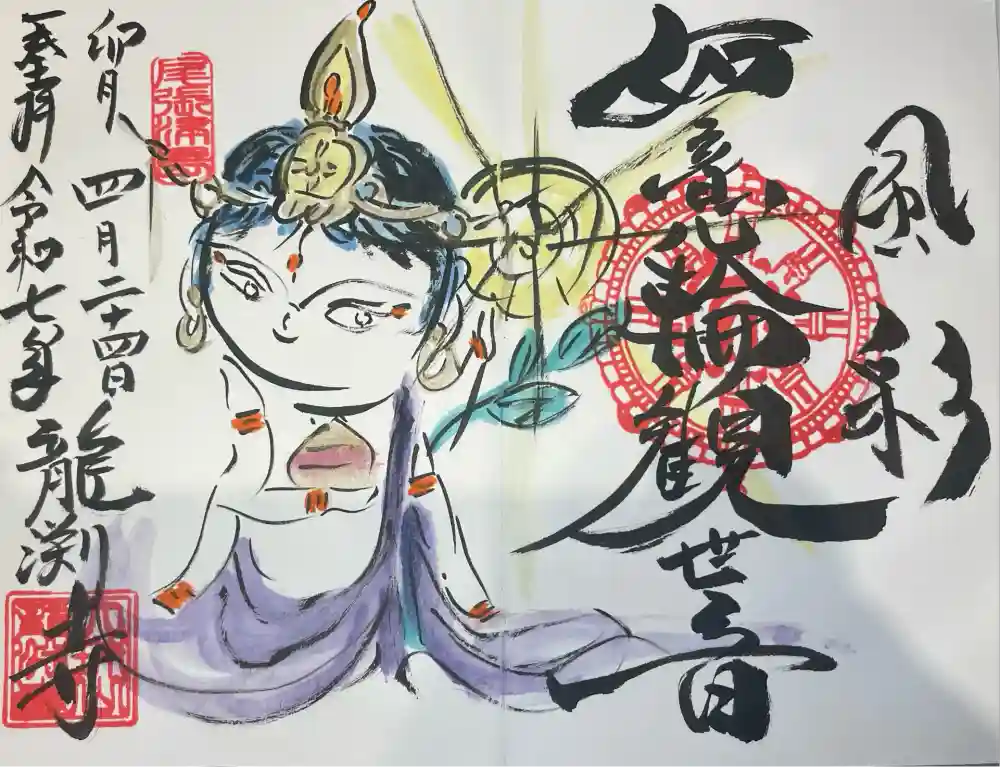 風彩
如意輪観世音
卯月 四月二十四日
奉拝 令和七年 龍渕寺
尾張津島